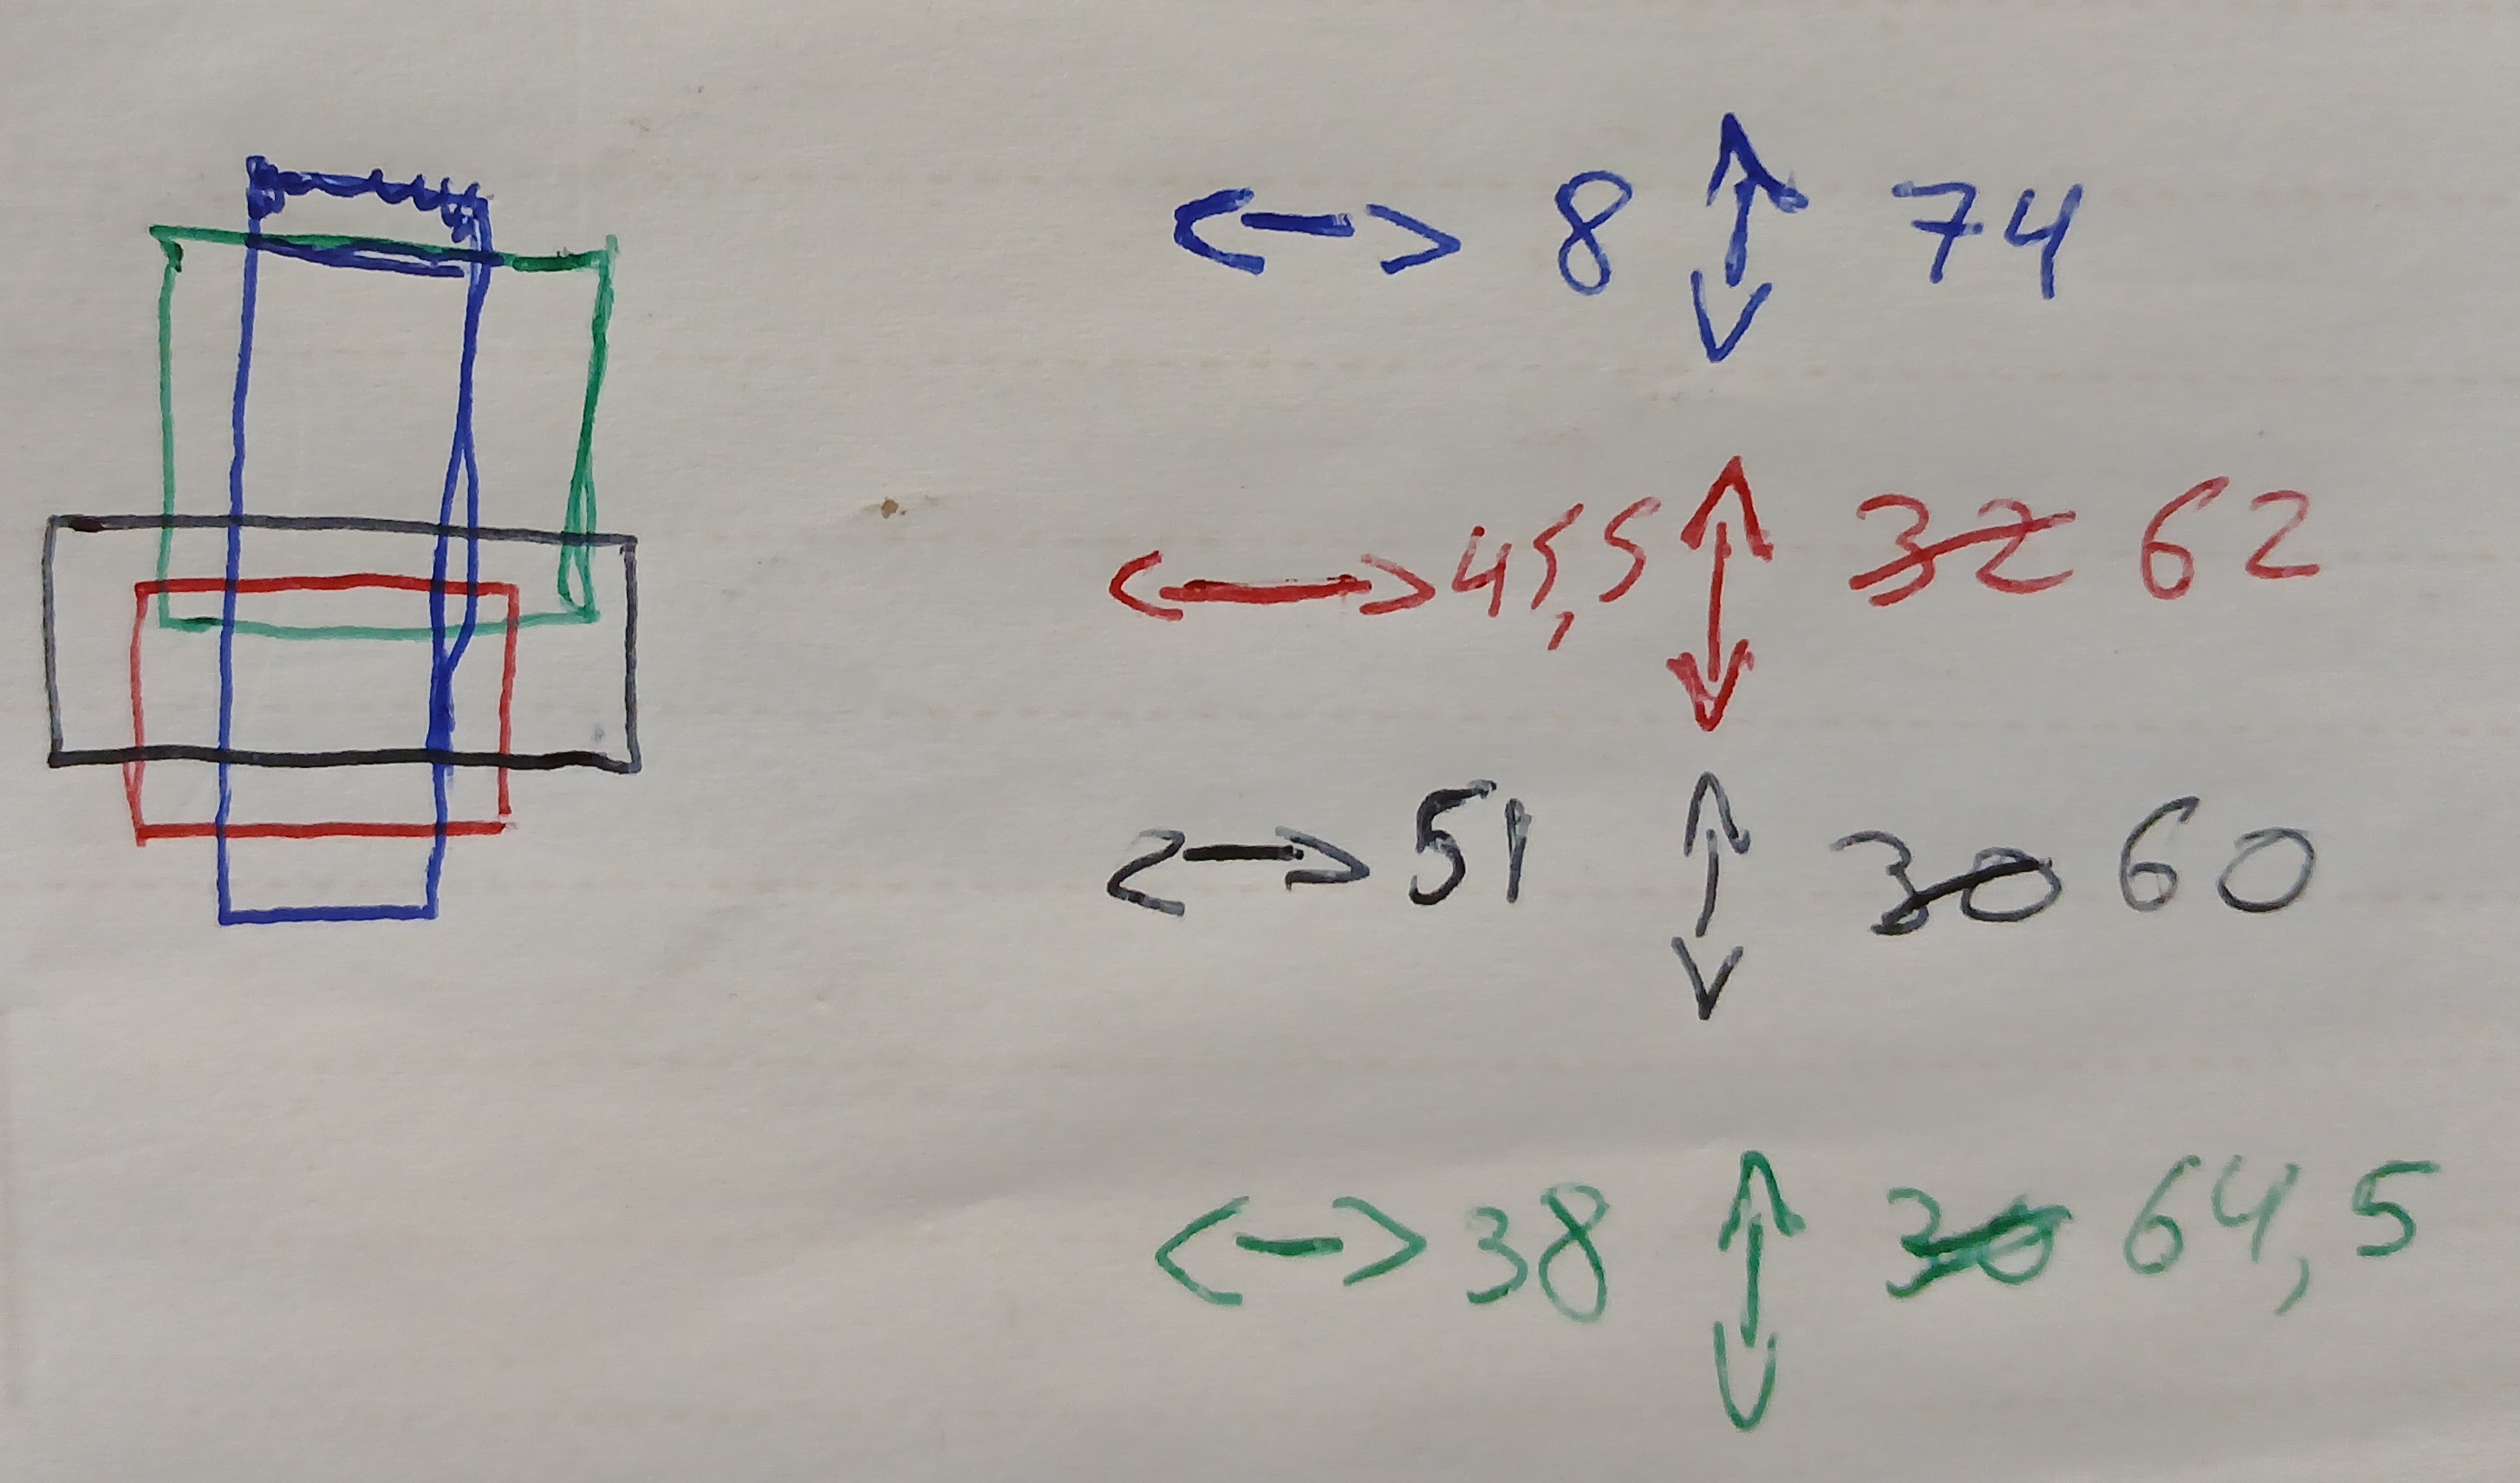 ↔ 8 ↕ 74
↔ 45,5 ↕ 32 62
↔ 51 ↕ 30 60
↔ 38 ↕ 30 64,5